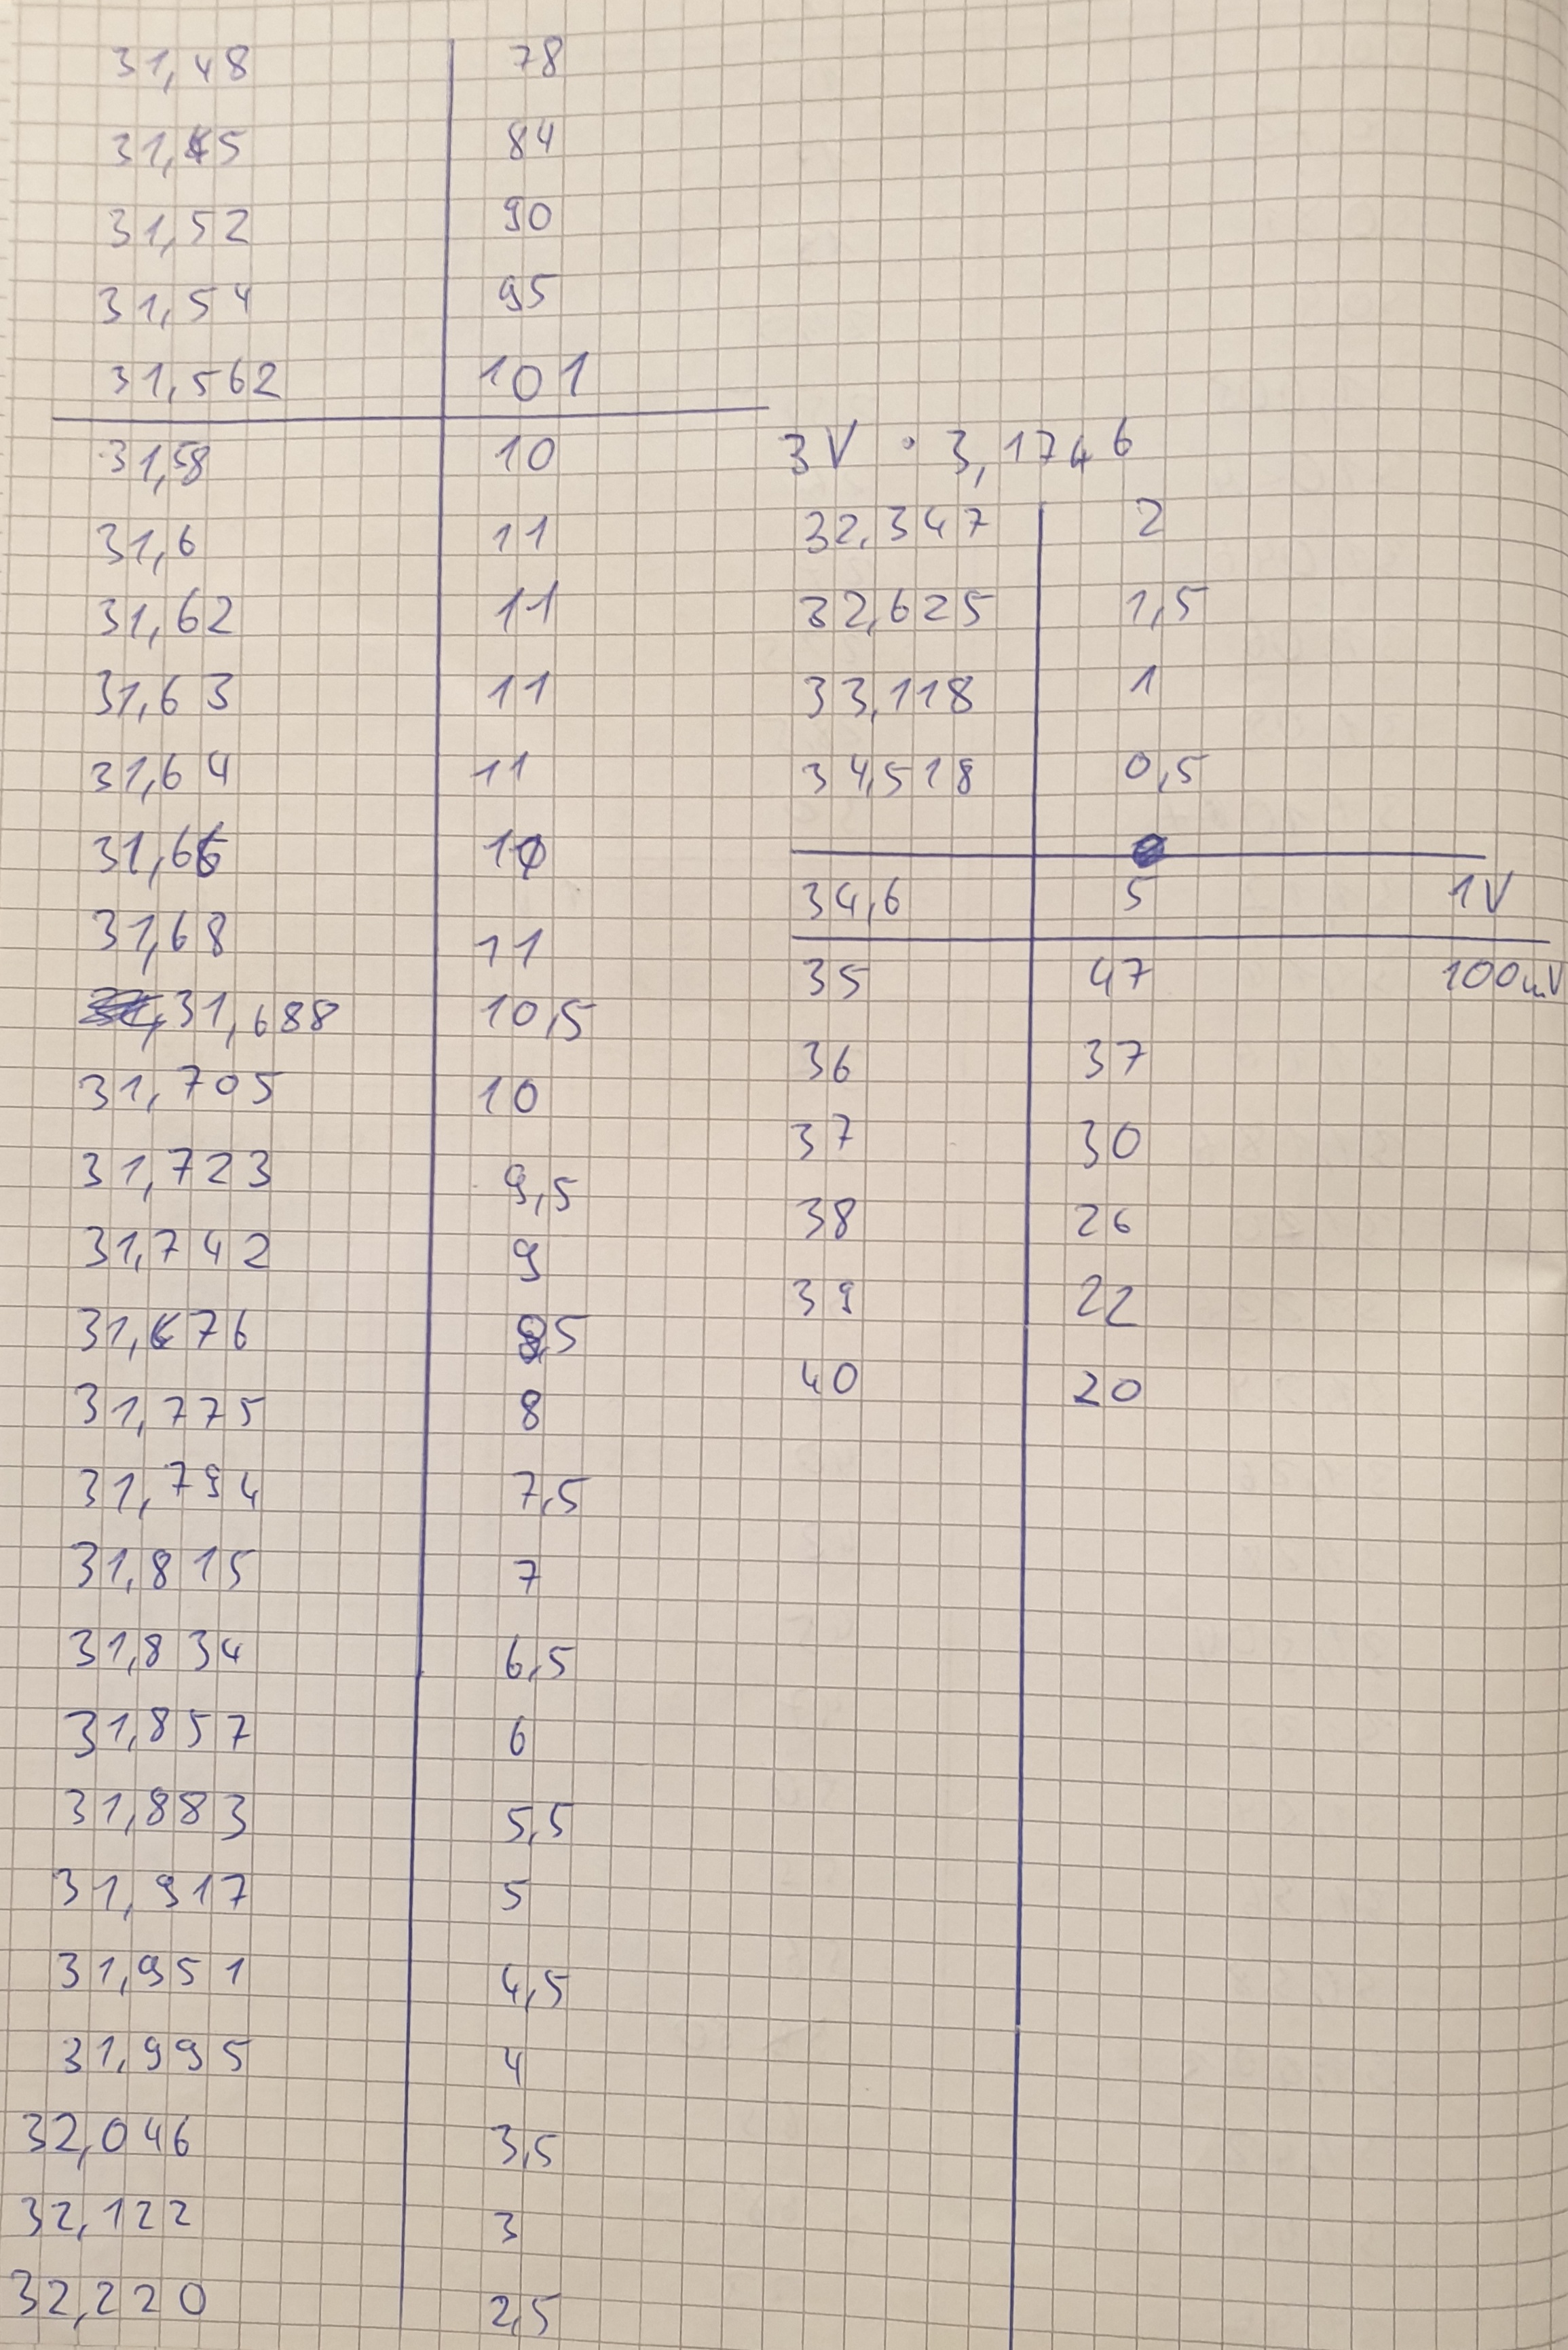 31,48 78
31,5 84
31,52 90
31,54 95
31,562 101
31,58 10
31,6 11
31,62 11
31,63 11
31,64 11
31,66
31,68 11
31,688 10,5
31,705 10
31,723 9,5
31,742 9
31,76 8,5
31,775 8
31,794 7,5
31,815 7
31,834 6,5
31,857 6
31,883 5,5
31,917 5
31,951 4,5
31,995 4
32,046 3,5
32,122 3
32,220 2,5
3V • 3,1746
32,347 2
32,625 1,5
33,118 1
34,518 0,5
34,6 5 1V
35 47 100mV
36 37
37 30
38 26
39 22
40 20